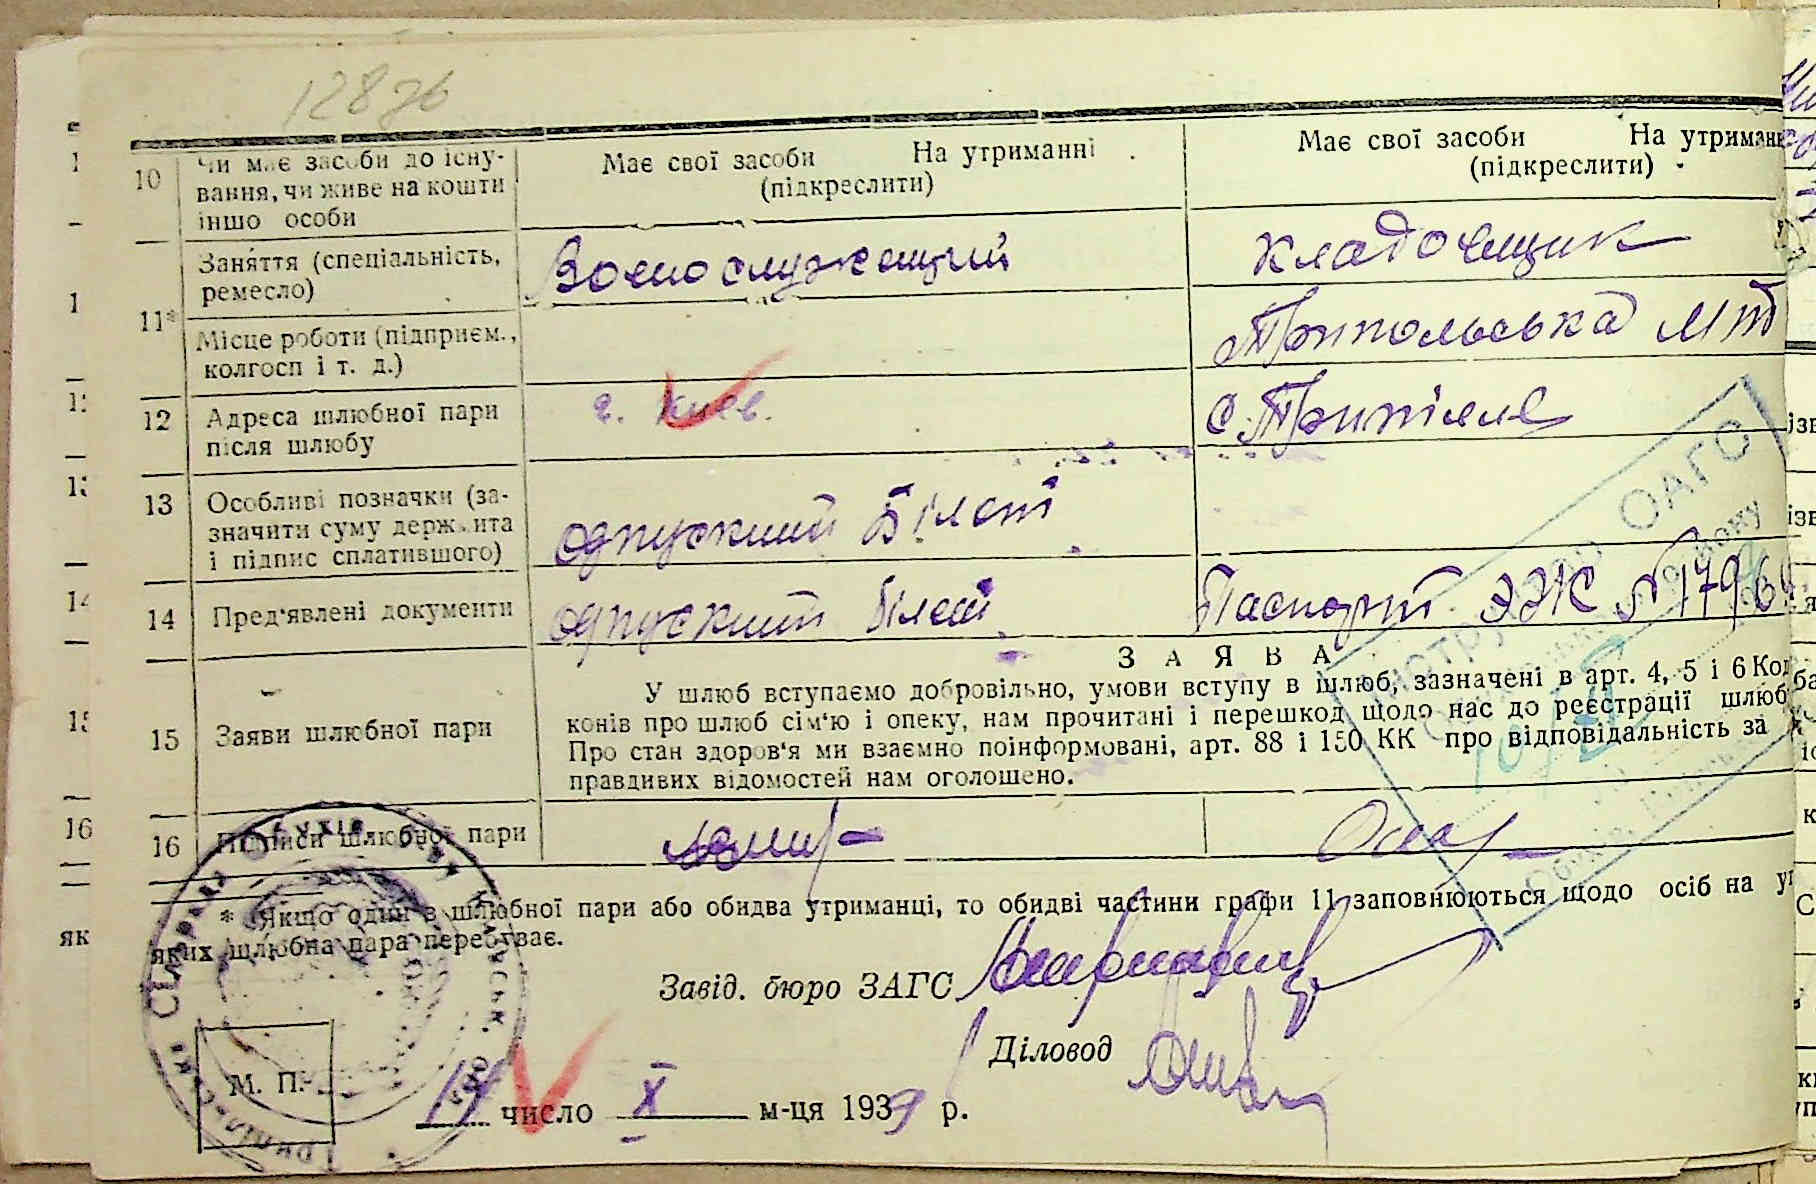 128зв
10 Чи має засоби до існу-
вання, чи живе на кошти
іншо особи
Має свої засоби На утриманні
(підкреслити)
Має свої засоби На утриманн
(підкреслити)
11* Заняття (спеціальність,
ремесло)
Военослужащий
Кладочщик
Місце роботи (підприєм.,
колгосп і т. д.)
Трипольська МТ
12 Адреса шлюбної пари
після шлюбу
г. Киев.
с. Трипілля
13 Особливі позначки (за-
значити суму держмита
і підпис сплатившого)
одпускний білєт
14 Пред'явлені документи
одпускний білєт
Паспорт ЭЖ №
15 Заяви шлюбної пари
ЗАЯВА
У шлюб вступаємо добровільно, умови вступу в шлюб, зазначені в арт. 4, 5 і 6 Ко
конів про шлюб сім'ю і опеку, нам прочитані і перешкод щодо нас до реєстрації шлюб
Про стан здоров'я ми взаємно поінформовані, арт. 88 і 150 КК про відповідальність за
правдивих відомостей нам оголошено.
16 Підписи шлюбної пари
* Якщо один з шлюбної пари або обидва утриманці, то обидві частини графи 11 заповнюються щодо осіб на у
яких шлюбна пара перебуває.
Завід. бюро ЗАГС
Діловод
М. П.
число X м-ця 1939 р.
ОАГС